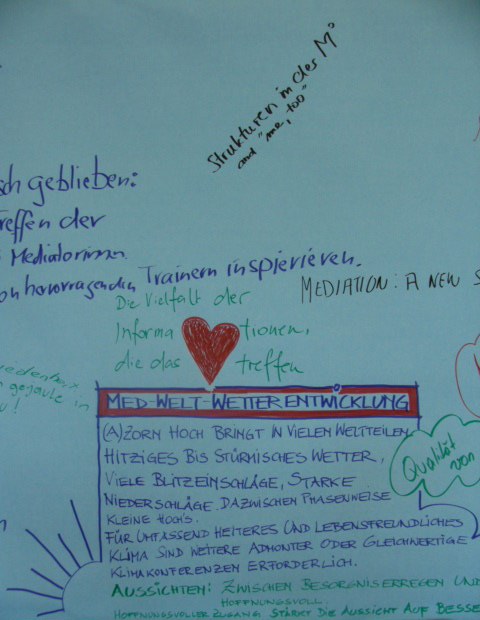 Strukturen in der M°
and "me, too"
sch geblieben:
Treffen der
Mediatorinnen
von hervorragenden Trainern inspierieren.
MEDIATION: A NEW S
Die Vielfalt der
Informa tionen,
die das treffen
in
MED-WELT-WETTERENTWICKLUNG
(A)ZORN HOCH BRINGT IN VIELEN WELTTEILEN
HITZIGES BIS STÜRMISCHES WETTER,
VIELE BLITZEINSCHLÄGE, STARKE
NIEDERSCHLÄGE. DAZWISCHEN PHASENWEISE
KLEINE HOCH'S.
FÜR UMFASSEND HEITERES UND LEBENSFREUNDLICHES
KLIMA SIND WEITERE ADMONTER ODER GLEICHWERTIGE
KLIMAKONFERENZEN ERFORDERLICH.
AUSSICHTEN: ZWISCHEN BESORGNISERREGEN UND
HOFFNUNGSVOLL.
HOFFNUNGSVOLLER ZUGANG STÄRKT DIE AUSSICHT AUF BESSE
Qualität
von